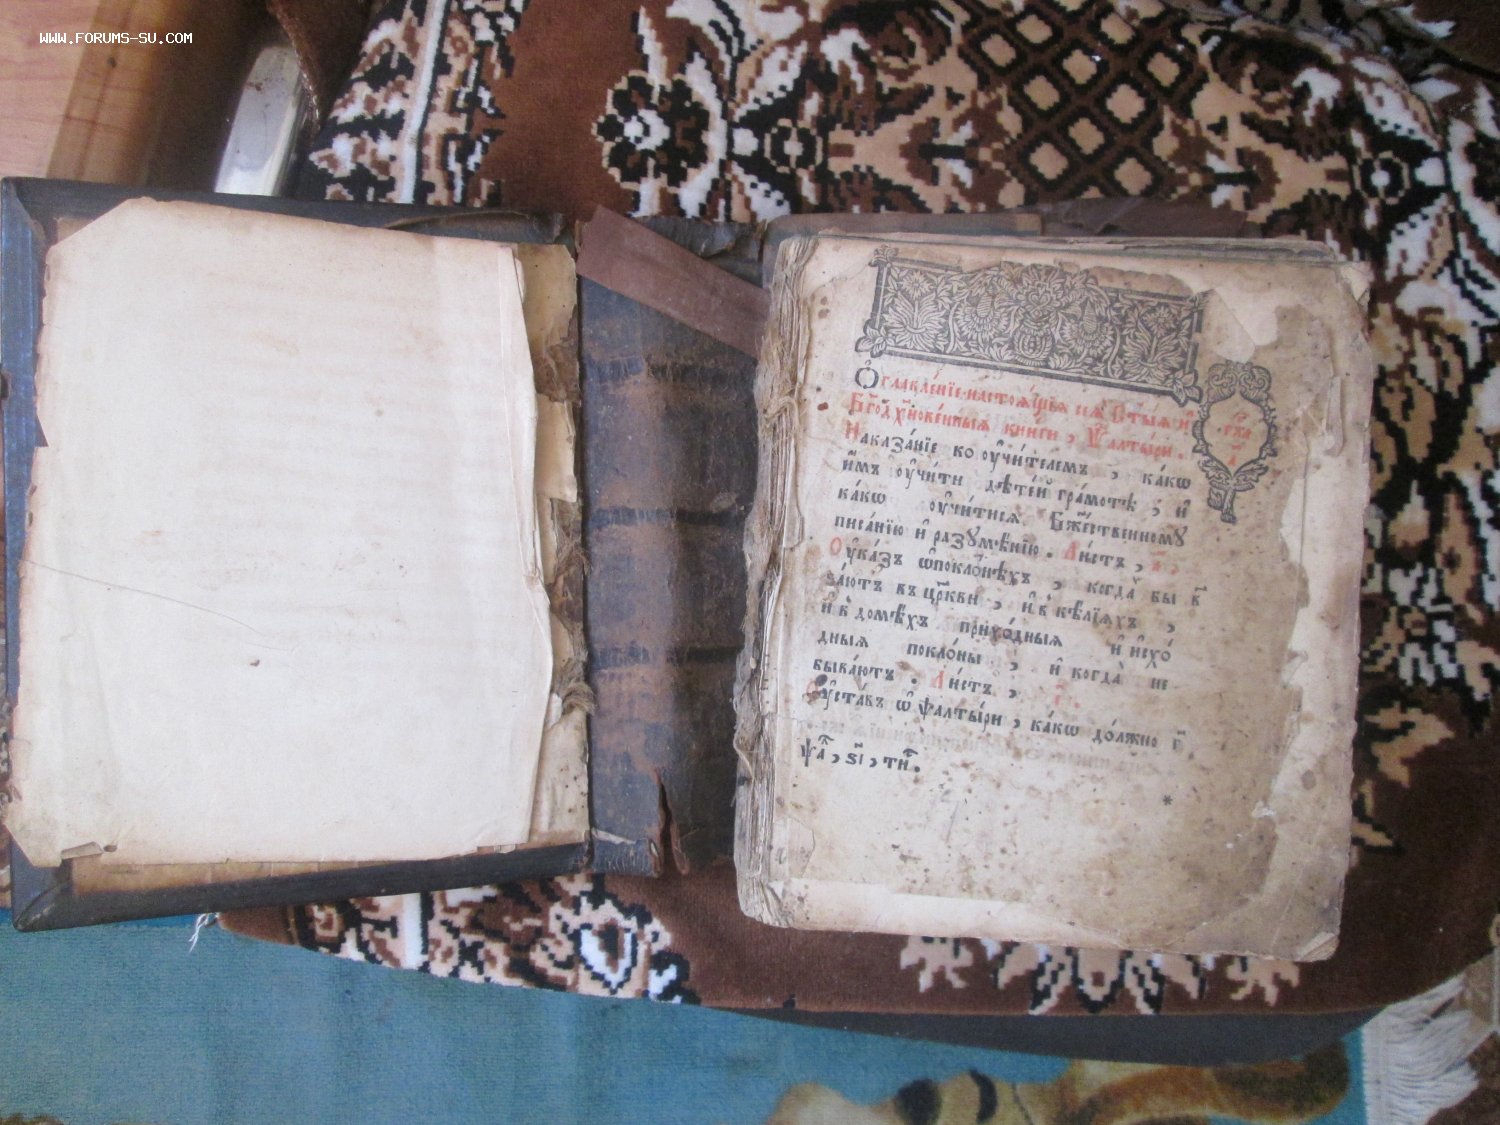 WWW.FORUMS-SU.COM
Ѻ҆главле́нїе настоѧ́щїѧ сеѧ̀ ст҃ы́ѧ и҆
бг҃одх҃нове́нныѧ кни́ги, ѱалты́ри.
Наказа́нїе ко ᲂу҆чи́телемъ, ка́кѡ
и҆̀мъ ᲂу҆чи́ти дѣте́й гра́мотѣ, и҆
ка́кѡ ᲂу҆чи́тисѧ бж҃е́ственному
писа́нїю и҆ разумѣ́нїю. Ли́стъ, а҃,
Ѹ҆ка́зъ ѡ҆поклонѣ́хъ, когда̀ бы в
за́ютъ въ цр҃кви, и҆ в ке́лїѧхъ,
и҆ в домѣ́хъ прихо́дныѧ и҆ и҆схо́
дныѧ покло́ны, и҆ когда̀ не
быва́ютъ. Ли́стъ,
Ѹ҆ста́въ ѡ҆ ѱалты́ри, ка́кѡ до́лжно